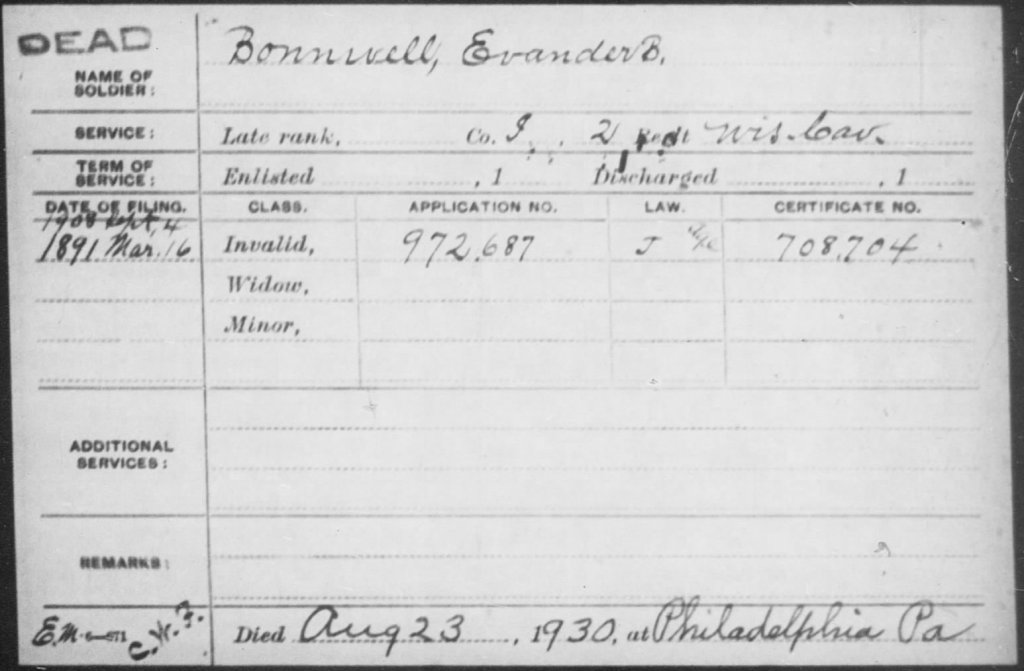 DEAD
Bonnwell, Evander B.
NAME OF
SOLDIER:
SERVICE: Late rank, Co. I, 2 Reg't Wis. Cav.
TERM OF
SERVICE: Enlisted , 1 Discharged , 1
DATE OF FILING. CLASS. APPLICATION NO. LAW. CERTIFICATE NO.
1908 Sept, 4
1891 Mar. 16 Invalid, 972,687 J 708,704
Widow,
Minor,
ADDITIONAL
SERVICES:
REMARKS:
E.M. 6—571 Died Aug 23, 1930, at Philadelphia Pa